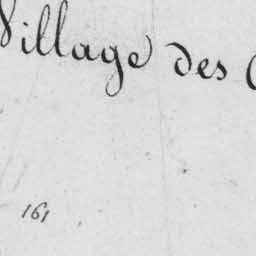 Village des
161